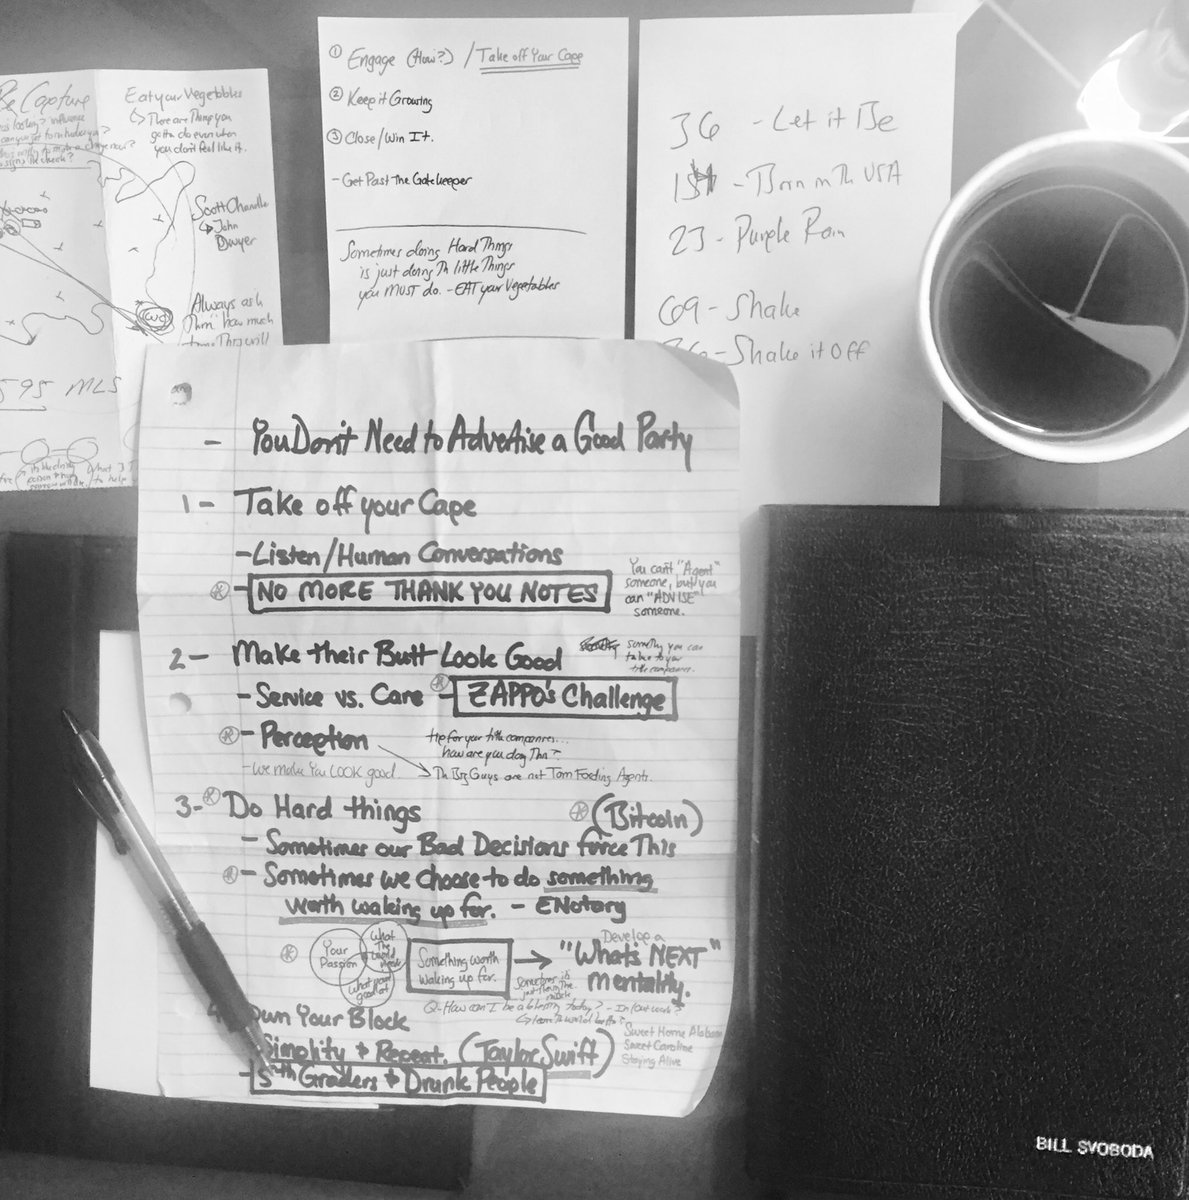 Be Capture
influence
Eat your Vegetables
There are Things you
gotta do even when
you don't feel like it.
Scott Chandle
John
Dwyer
Always ask
how much
595 MLS
to help
① Engage (How?) / Take off Your Cape
② Keep it Growing
③ Close/Win It.
- Get Past The Gatekeeper
Sometimes doing Hard Things
is just doing Th little Things
you MUST do. - EAT your Vegetables
36 - Let it Be
- Born in Th USA
23 - Purple Rain
69 - Shake
- Shake it Off
- You Don't Need to Advertise a Good Party
1 - Take off your Cape
- Listen/Human Conversations
- NO MORE THANK YOU NOTES
You can't "Agent"
someone, but you
can "ADVISE"
someone.
2 - Make their Butt Look Good
something you can
take to your
title companies.
- Service vs. Care - ZAPPO's Challenge
- Perception
tip for your title companies...
how are you doing This?
- We make You LOOK good
Th Big Guys are not Tom Fooling Agents.
3 - Do Hard things
(Bitcoin)
- Sometimes our Bad Decisions force This
- Sometimes we choose to do something
worth waking up for. - ENotary
Your
Passion
What
The
world
needs
What your
good at
Something worth
waking up for.
Develop a
"What's NEXT"
mentality.
Sometimes it
Q-How can I be a blessing today?
Own Your Block
Simplify & Repeat. (Taylor Swift)
Sweet Home Alabama
Sweet Caroline
Staying Alive
- 5th Graders & Drunk People
BILL SVOBODA